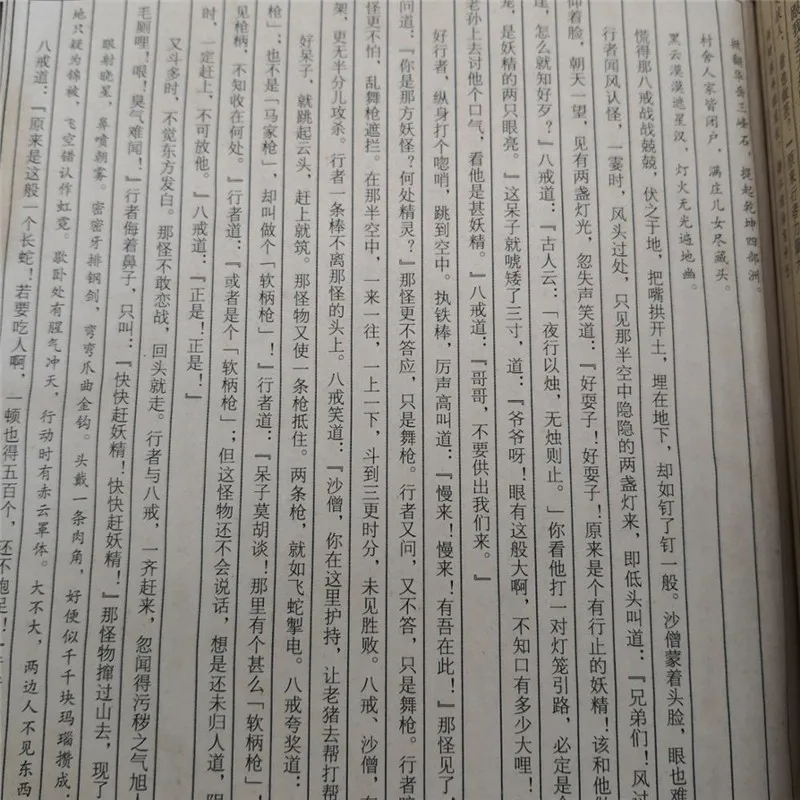 掀翻华岳三峰石，提起乾坤四部洲。
村舍人家皆闭户，满庄儿女尽藏头。
黑云漠漠遮星汉，灯火无光遍地幽。
慌得那八戒战战兢兢，伏之于地，把嘴拱开土，埋在地下，却如钉了钉一般。沙僧蒙着头脸，眼也难
行者闻风认怪，一霎时，风头过处，只见那半空中隐隐的两盏灯来，即低头叫道：『兄弟们！风过
仰着脸，朝天一望，见有两盏灯光，忽失声笑道：『好耍子！好耍子！原来是个有行止的妖精！该和他做
逢，怎么就知好歹？』八戒道：『古人云：「夜行以烛，无烛则止。」你看他打一对灯笼引路，必定是个
笼，是妖精的两只眼亮。』这呆子就唬矮了三寸，道：『爷爷呀！眼有这般大啊，不知口有多少大哩！
老孙上去讨他个口气，看他是甚妖精。』八戒道：『哥哥，不要供出我们来。』
好行者，纵身打个唿哨，跳到空中。执铁棒，厉声高叫道：『慢来！慢来！有吾在此！』那怪见了，
问道：『你是那方妖怪？何处精灵？』那怪更不答应，只是舞枪。行者又问，又不答，只是舞枪。行者暗
怪更不怕，乱舞枪遮拦。在那半空中，一来一往，一上一下，斗到三更时分，未见胜败。八戒、沙僧，在
架，更无半分儿攻杀。行者一条棒不离那怪的头上。八戒笑道：『沙僧，你在这里护持，让老猪去帮打帮
好呆子，就跳起云头，赶上就筑。那怪物又使一条枪抵住。两条枪，就如飞蛇掣电。八戒夸奖道：
枪」：也不是「马家枪」，却叫做个「软柄枪」！』行者道：『呆子莫胡谈！那里有个甚么「软柄枪」！
见枪柄，不知收在何处。』行者道：『或者是个「软柄枪」；但这怪物还不会说话，想是还未归人道，阴
时，一定赶上，不可放他。』八戒道：『正是！正是！』
又斗多时，不觉东方发白。那怪不敢恋战，回头就走。行者与八戒，一齐赶来，忽闻得污秽之气旭人
毛厕哩！哏！臭气难闻！』行者侮着鼻子，只叫：『快快赶妖精！快快赶妖精！』那怪物撺过山去，现了
眼射晓星，鼻喷朝雾。密密牙排钢剑，弯弯爪曲金钩。头戴一条肉角，好便似千千块玛瑙攒成；
地只疑为锦被，飞空错认作虹霓。歇卧处有腥气冲天，行动时有赤云罩体。大不大，两边人不见东西
八戒道：『原来是这般一个长蛇！若要吃人啊，一顿也得五百个，还不饱足！』